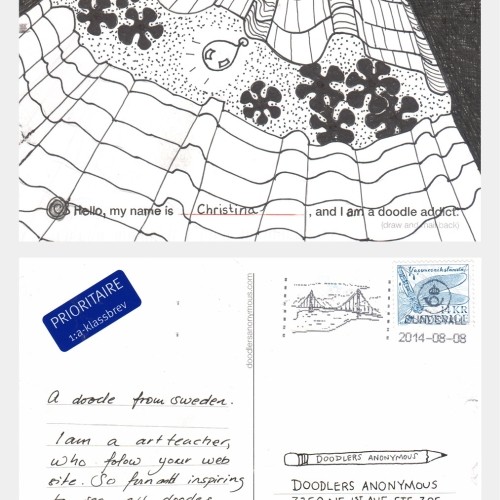 Hello, my name is Christina, and I am a doodle addict.
(draw and mail back)
PRIORITAIRE
1:a-klassbrev
doodlersanonymous.com
14 KR
SUNDSVALL
2014-08-08
A doodle from sweden.
I am a art teacher,
who folow your web
site. So fun and inspiring
DOODLERS ANONYMOUS
DOODLERS ANONYMOUS